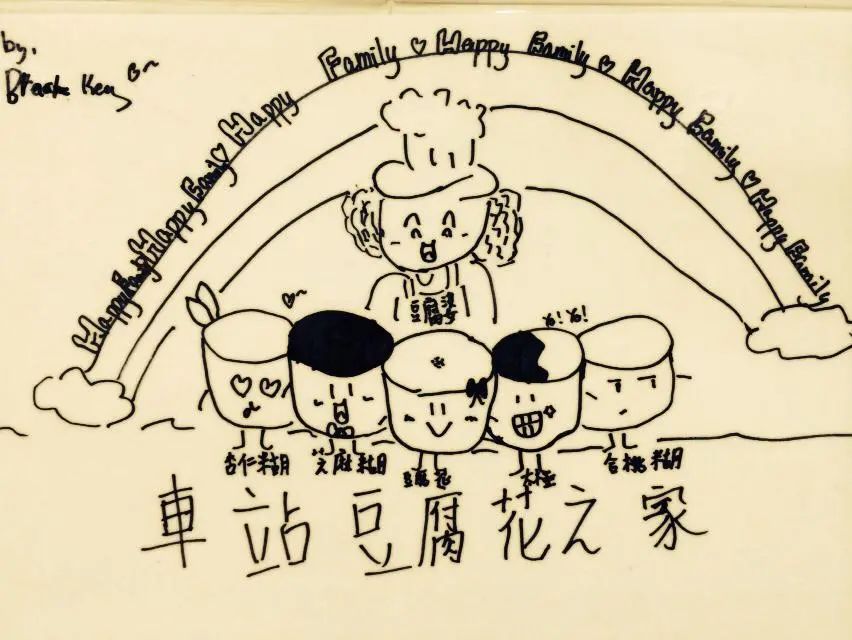 by.
Happy Family Happy Family ♡ Happy Family ♡ Happy Family ♡ Happy Family ♡ Happy Family
豆腐婆
Yo! Yo!
杏仁糊 芝麻糊 豆腐花 太極 合桃糊
車站豆腐花之家